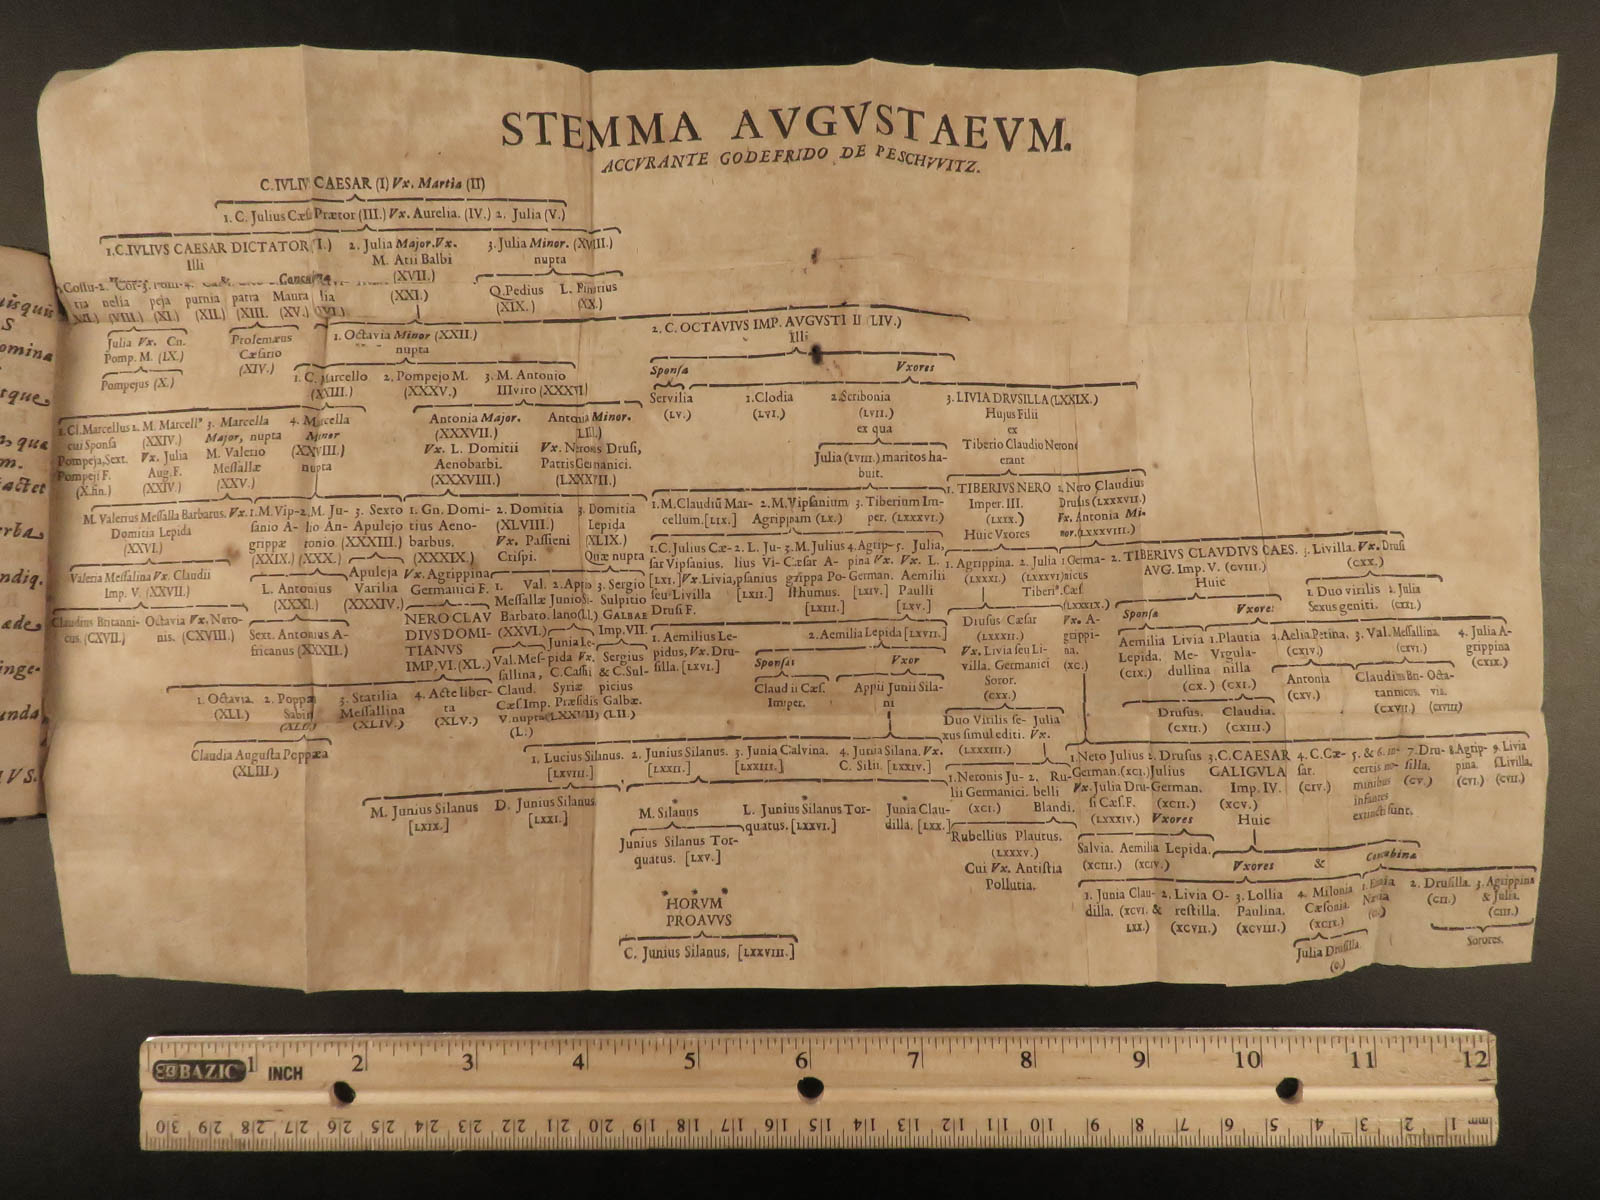 STEMMA AVGVSTAEVM.
ACCVRANTE GODEFRIDO DE PESCHVVITZ.
C. IVLIV CAESAR (I) Vx. Martia (II)
1. C. Julius Cæs Prætor (III.) Vx. Aurelia. (IV.) 2. Julia (V.)
1. C. IVLIVS CAESAR DICTATOR (I.)
Illi
2. Julia Major. Vx.
M. Atii Balbi
(XVII.)
(XXI.)
3. Julia Minor. (XVIII.)
nupta
Q. Pedius
(XIX.)
L. Pinarius
(XX.)
Cossu-
tia
nelia
(VIII.)
peja
(XI.)
purnia
(XII.)
patra
(XIII.
Maura
(XV.)
lia
Julia Vx. Cn.
Pomp. M. (IX.)
Pompejus (X.)
Ptolemæus
Cæsario
(XIV.)
1. Octavia Minor (XXII.)
nupta
2. C. OCTAVIUS IMP. AVGVSTI II (LIV.)
Illi
1. C. Marcello
(XXIII.)
2. Pompejo M.
(XXXV.)
3. M. Antonio
IIIviro (XXXVI)
Sponsa
Vxores
Servilia
(LV.)
1. Clodia
(LVI.)
2. Scribonia
(LVII.)
ex qua
Julia (LVIII.) maritos ha-
buit.
3. LIVIA DRVSILLA (LXXIX.)
Hujus Filii
ex
Tiberio Claudio Nerone
erant
1. Cl. Marcellus
cui Sponsa
Pompeja, Sext.
Pompeji F.
2. M. Marcell
(XXIV.)
Vx. Julia
Aug. F.
(XXIV.)
3. Marcella
Major, nupta
M. Valerio
Messallæ
(XXV.)
4. Marcella
Minor
(XXVIII.)
nupta
Antonia Major.
(XXXVII.)
Vx. L. Domitii
Aenobarbi.
(XXXVIII.)
Antonia Minor.
Vx. Neronis Drusi,
Patris Germanici.
(LXXXVII.)
M. Valerius Messalla Barbatus. Vx.
Domitia Lepida
(XXVI.)
Valeria Messalina Vx. Claudii
Imp. V. (XXVII.)
Claudius Britanni-
cus. (CXVII.)
Octavia Vx. Nero-
nis. (CXVIII.)
1. M. Vip-
sanio A-
grippæ
(XXIX.)
2. M. Ju-
lio An-
tonio
(XXX.)
3. Sexto
Apulejo
(XXXIII.)
L. Antonius
(XXXI.)
Sext. Antonius A-
fricanus (XXXII.)
Apuleja
Varilia
(XXXIV.)
1. Gn. Domi-
tius Aeno-
barbus.
(XXXIX.)
Vx. Agrippina
Germanici F.
NERO CLAV
DIVS DOMI-
TIANVS
IMP. VI. (XL.)
2. Domitia
(XLVIII.)
Vx. Passieni
Crispi.
3. Domitia
Lepida
(XLIX.)
Quæ nupta
1. Val.
Messallæ
Barbato.
(XXVI.)
Val. Mes-
sallina,
Claud.
Cæs Imp.
V. nupta (XXVII)
(L.)
Junia Le-
pida Vx.
C. Cassi
Syriæ
Præsidis
3. Sergio
Sulpitio
GALBAE
Imp. VII.
Sergius
& C. Sul-
picius
Galbæ.
(LII.)
1. Octavia.
(XLI.)
2. Poppæ
Sabin
3. Statilia
Messallina
(XLIV.)
4. Acte liber-
ta
(XLV.)
Claudia Augusta Poppæa
(XLIII.)
1. M. Claudiũ Mar-
cellum. [LIX.]
2. M. Vipsanium
Agrippam (LX.)
3. Tiberium Im-
per. (LXXXVI.)
1. C. Julius Cæ-
sar Vipsanius.
[LXI.] Vx. Livia,
seu Livilla
Drusi F.
2. L. Ju-
lius Vi-
psanius
[LXII.]
3. M. Julius
Cæsar A-
grippa Po-
sthumus.
[LXIII.]
4. Agrip-
pina Vx.
German.
[LXIV.]
5. Julia,
Vx. L.
Aemilii
Paulli
[LXV.]
1. Aemilius Le-
pidus, Vx. Dru-
silla. [LXVI.]
2. Aemilia Lepida [LXVII.]
Sponsus
Vxor
Claudii Cæs.
Imper.
Appii Junii Sila-
ni
1. Lucius Silanus.
[LXVIII.]
2. Junius Silanus.
[LXXII.]
3. Junia Calvina.
[LXXIII.]
4. Junia Silana. Vx.
C. Silii. [LXXIV.]
M. Junius Silanus
[LXIX.]
D. Junius Silanus.
[LXXI.]
M. Silanus
L. Junius Silanus Tor-
quatus. [LXXVI.]
Junia Clau-
dilla. [LXX.]
Junius Silanus Tor-
quatus. [LXV.]
HORVM
PROAVVS
C. Junius Silanus, [LXXVIII.]
1. TIBERIVS NERO
Imper. III.
(LXXX.)
Huic Vxores
2. Nero Claudius
Drusus (LXXXVII.)
Vx. Antonia Mi-
nor. (LXXXVIII.)
1. Agrippina.
(LXXXI.)
2. Julia
(LXXXVI)
Tiberii
Drusus Cæsar
(LXXXII.)
Vx. Livia seu Li-
villa. Germanici
Soror.
(CXX.)
Duo Virilis se-
xus simul editi.
(LXXXIII.)
Julia
Vx.
1. Neronis Ju-
lii Germanici.
(XCI.)
2. Ru-
belli
Blandi.
Rubellius Plautus.
(LXXXV.)
Cui Vx. Antistia
Pollutia.
1. Germa-
nicus
Cæs.
(LXXXIX.)
Vx. A-
grippi-
na.
(XC.)
2. TIBERIVS CLAVDIVS CAES.
AVG. Imp. V. (CVIII.)
Huic
3. Livilla. Vx. Drusi
(CXX.)
1. Duo virilis
Sexus geniti.
2. Julia
(CXXI.)
Sponsa
Vxores
Aemilia
Lepida.
(CIX.)
Livia
Me-
dullina
(CX.)
1. Plautia
Vrgula-
nilla
(CXI.)
2. Aelia Petina.
(CXIV.)
3. Val. Messallina
(CXVI.)
4. Julia A-
grippina
(CXIX.)
Drusus.
(CXII.)
Claudia.
(CXIII.)
Antonia
(CXV.)
Claudius Bri-
tannicus.
(CXVII.)
Octa-
via.
(CXVIII)
1. Nero Julius
German. (XCI.)
Vx. Julia Dru-
si Cæs. F.
(LXXXIV.)
2. Drusus
Julius
German.
(XCII.)
Vxores
3. C. CAESAR
CALIGVLA
Imp. IV.
(XCV.)
Huic
4. C. Cæ-
sar.
(CIV.)
5. & 6. in-
certis no-
minibus
infantes
extincti sunt.
7. Dru-
silla.
(CV.)
8. Agrip-
pina.
(CVI.)
9. Livia
s. Livilla.
(CVII.)
Salvia.
(XCIII.)
Aemilia Lepida.
(XCIV.)
Vxores
&
Concubina
1. Junia Clau-
dilla. (XCVI. &
LXX.)
2. Livia O-
restilla.
(XCVII.)
3. Lollia
Paulina.
(XCVIII.)
4. Milonia
Cæsonia.
(XCIX.)
Julia Drusilla.
2. Drusilla.
(CII.)
3. Agrippina
& Julia.
(CIII.)
Sorores.
BAZIC
INCH
1 2 3 4 5 6 7 8 9 10 11 12
30 29 28 27 26 25 24 23 22 21 20 19 18 17 16 15 14 13 12 11 10 9 8 7 6 5 4 3 2 1 mm